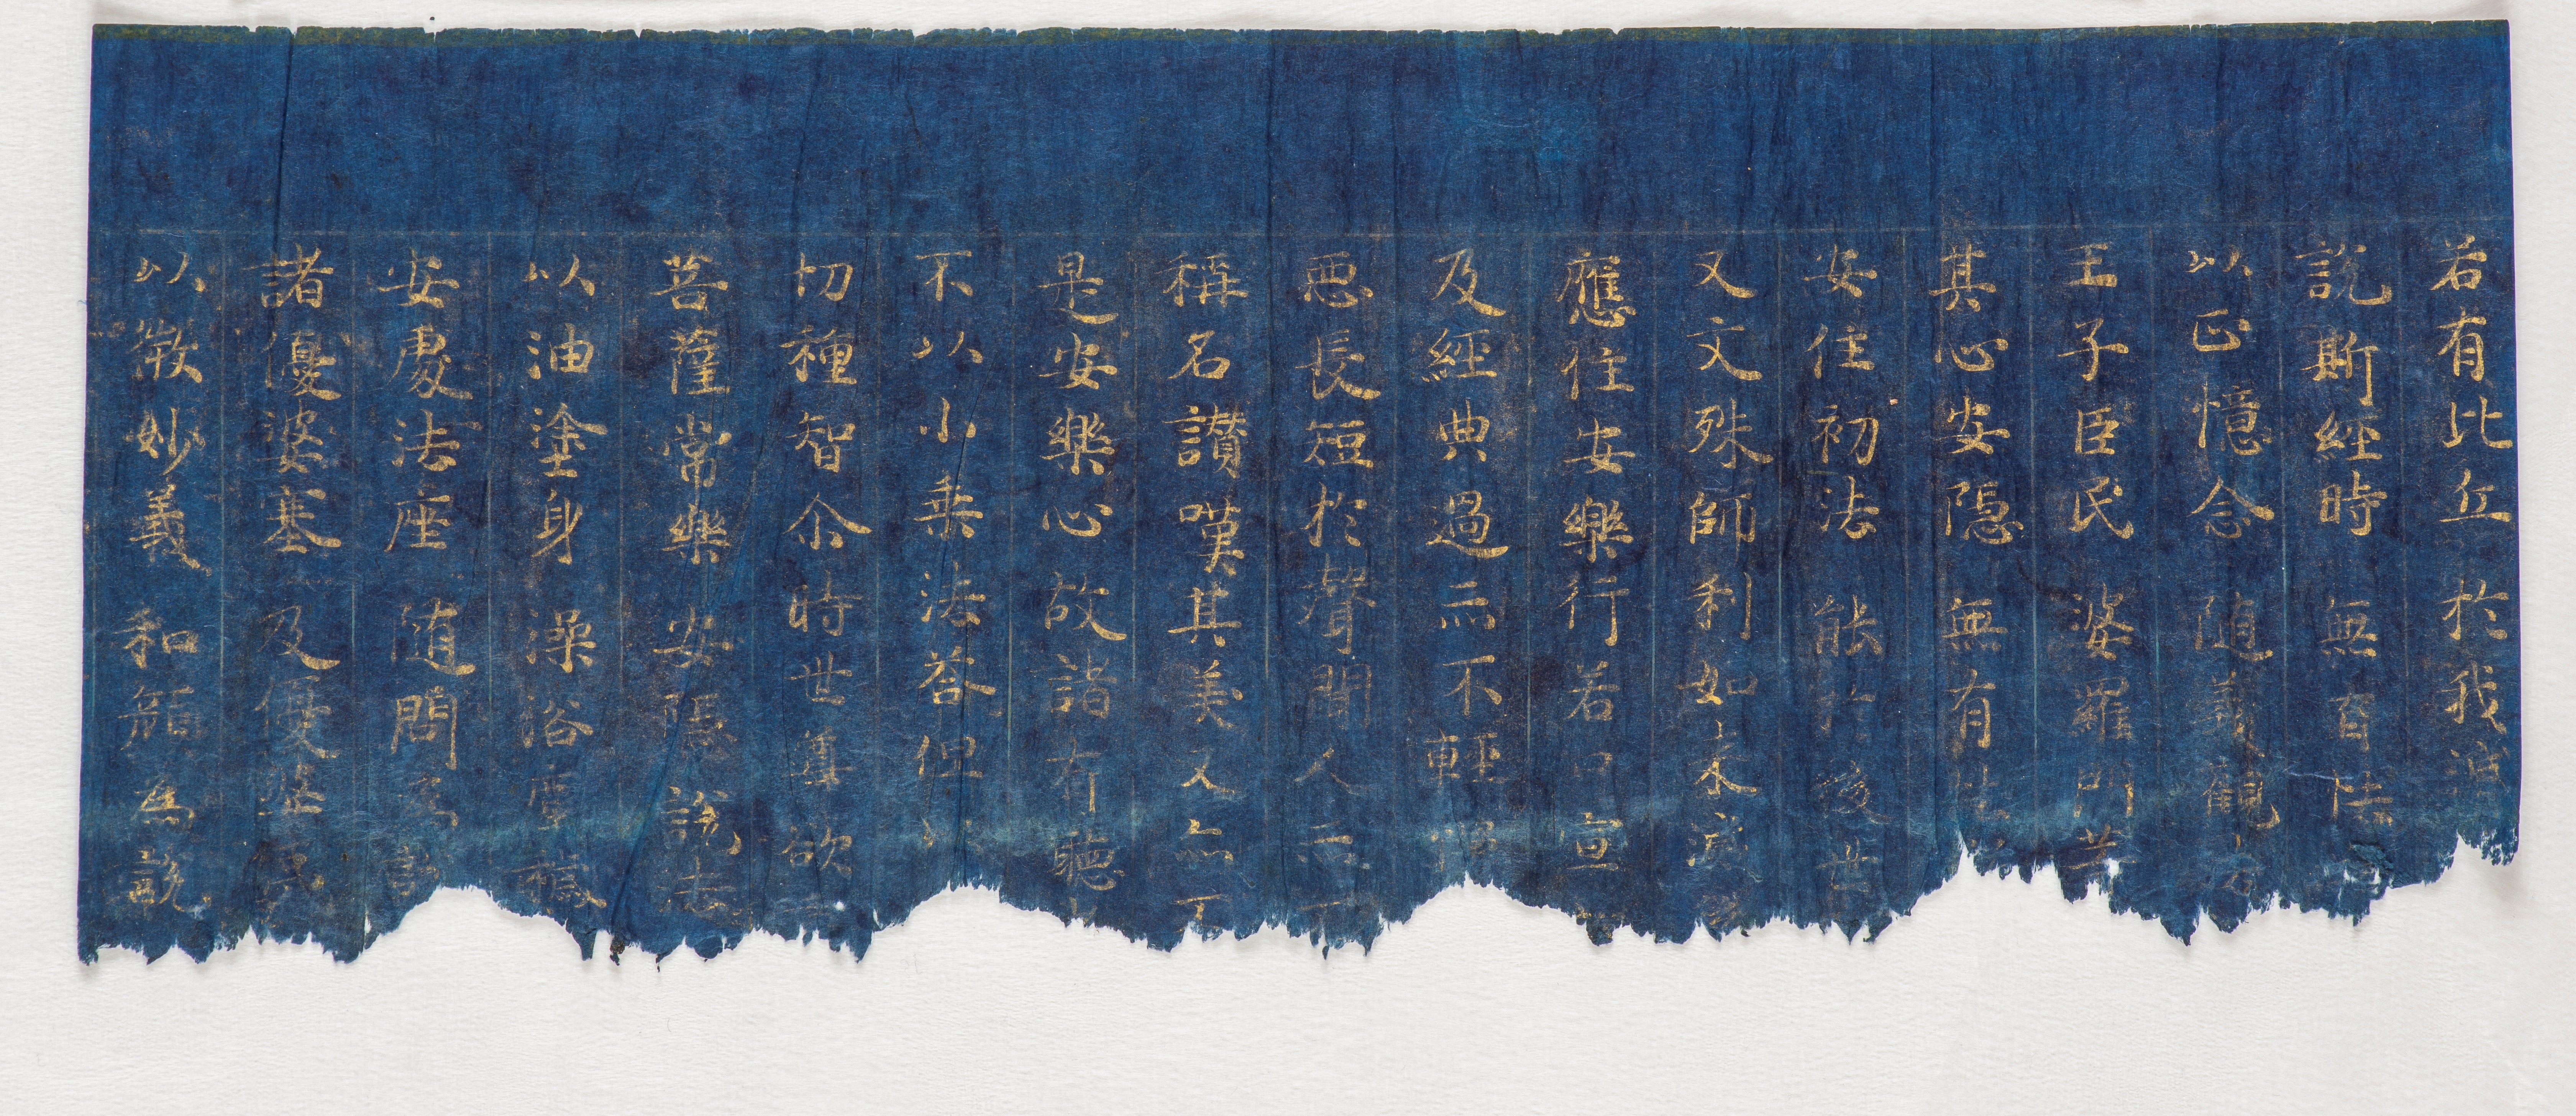 若有比丘 於我滅
說斯經時 無有怯
以正憶念 随義觀
王子臣民 婆羅門等
其心安隱 無有怯
安住初法 能於後世
又文殊師利如來滅
應住安樂行若口宣
及經典過亦不輕
惡長短於聲聞人亦不
稱名讃嘆其美又亦不
是安樂心故諸有聽
不以小乗法荅但
切種智尒時世尊欲
菩薩常樂 安隱說法
以油塗身 澡浴塵穢
安處法座 随問為說
諸優婆塞 及優婆夷
以微妙義 和顔為說